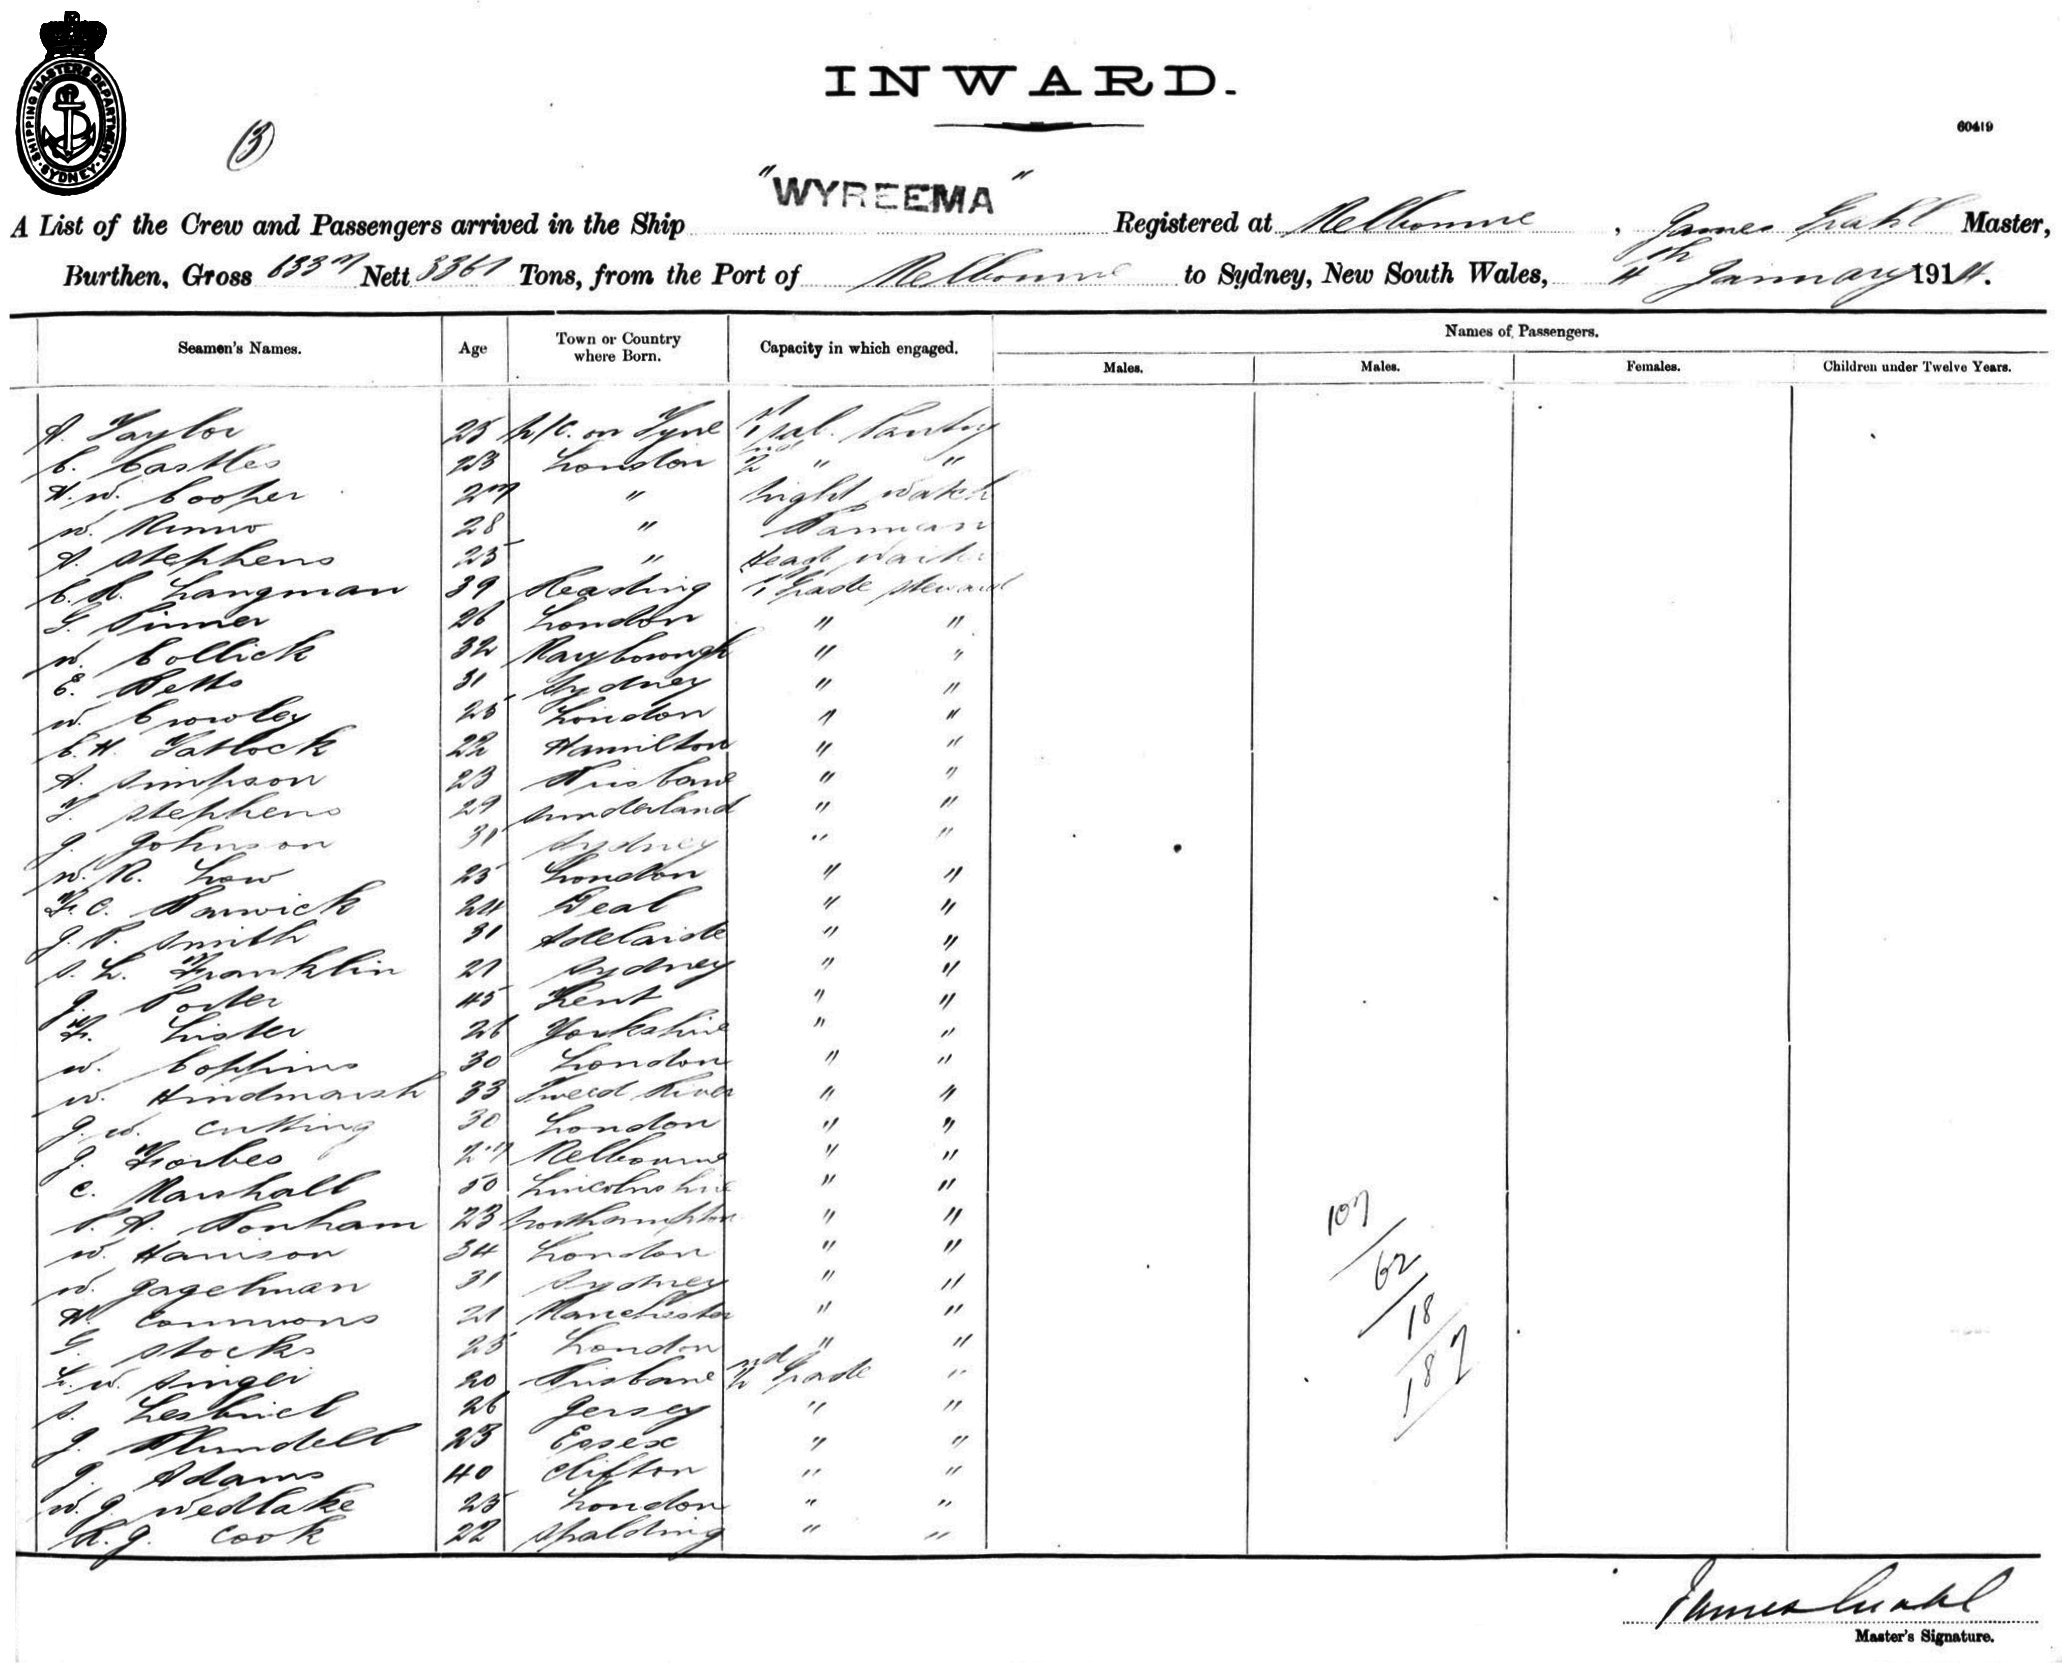 INWARD.
SHIPPING MASTERS DEPARTMENT SYDNEY
(3)
60419
"WYREEMA"
A List of the Crew and Passengers arrived in the Ship Registered at Melbourne, James Grahl Master,
Burthen, Gross 6337 Nett 3361 Tons, from the Port of Melbourne to Sydney, New South Wales, 4th January 1914.
Seamen's Names. Age Town or Country where Born. Capacity in which engaged. Names of Passengers.
Males. Males. Females. Children under Twelve Years.
A. Taylor 25 N/C. on Tyne 1st Sal. Pantry
C. Castles 23 London 2nd " "
H. W. Cooper 27 " Night Watch
W. 28 "
A. Stephens 25 " Head Waiter
C. R. Langman 39 Reading 1st Grade Steward
G. Pinner 26 London " "
W. Collick 32 Maryborough " "
E. Betts 31 Sydney " "
W. Crowley 25 London " "
C. H. Tatlock 22 Hamilton " "
A. Simpson 23 Brisbane " "
T. Stephens 29 Sunderland " "
J. Johnson 31 Sydney " "
W. R. Low 25 London " "
F. C. Barwick 24 Deal " "
J. P. Smith 31 Adelaide " "
S. L. Franklin 21 Sydney " "
J. Porter 45 Kent " "
F. Lister 26 Yorkshire " "
W. Coppins 30 London " "
W. Hindmarsh 33 Tweed River " "
J. W. Cutting 30 London " "
J. Forbes 27 Melbourne " "
C. Marshall 50 Lincolnshire " "
P. A. Bonham 23 Northampton " "
W. Harrison 34 London " "
W. Gagelman 31 Sydney " "
H. Commons 21 Manchester " "
G. Stocks 25 London " "
L. W. Singer 20 Brisbane 2nd Grade "
S. Lesbriel 26 Jersey " "
J. Blundell 23 Essex " "
J. Adams 40 Clifton " "
W. J. Wedlake 25 London " "
R. J. Cook 22 Spalding " "
107
62
18
187
James Grahl
Master's Signature.